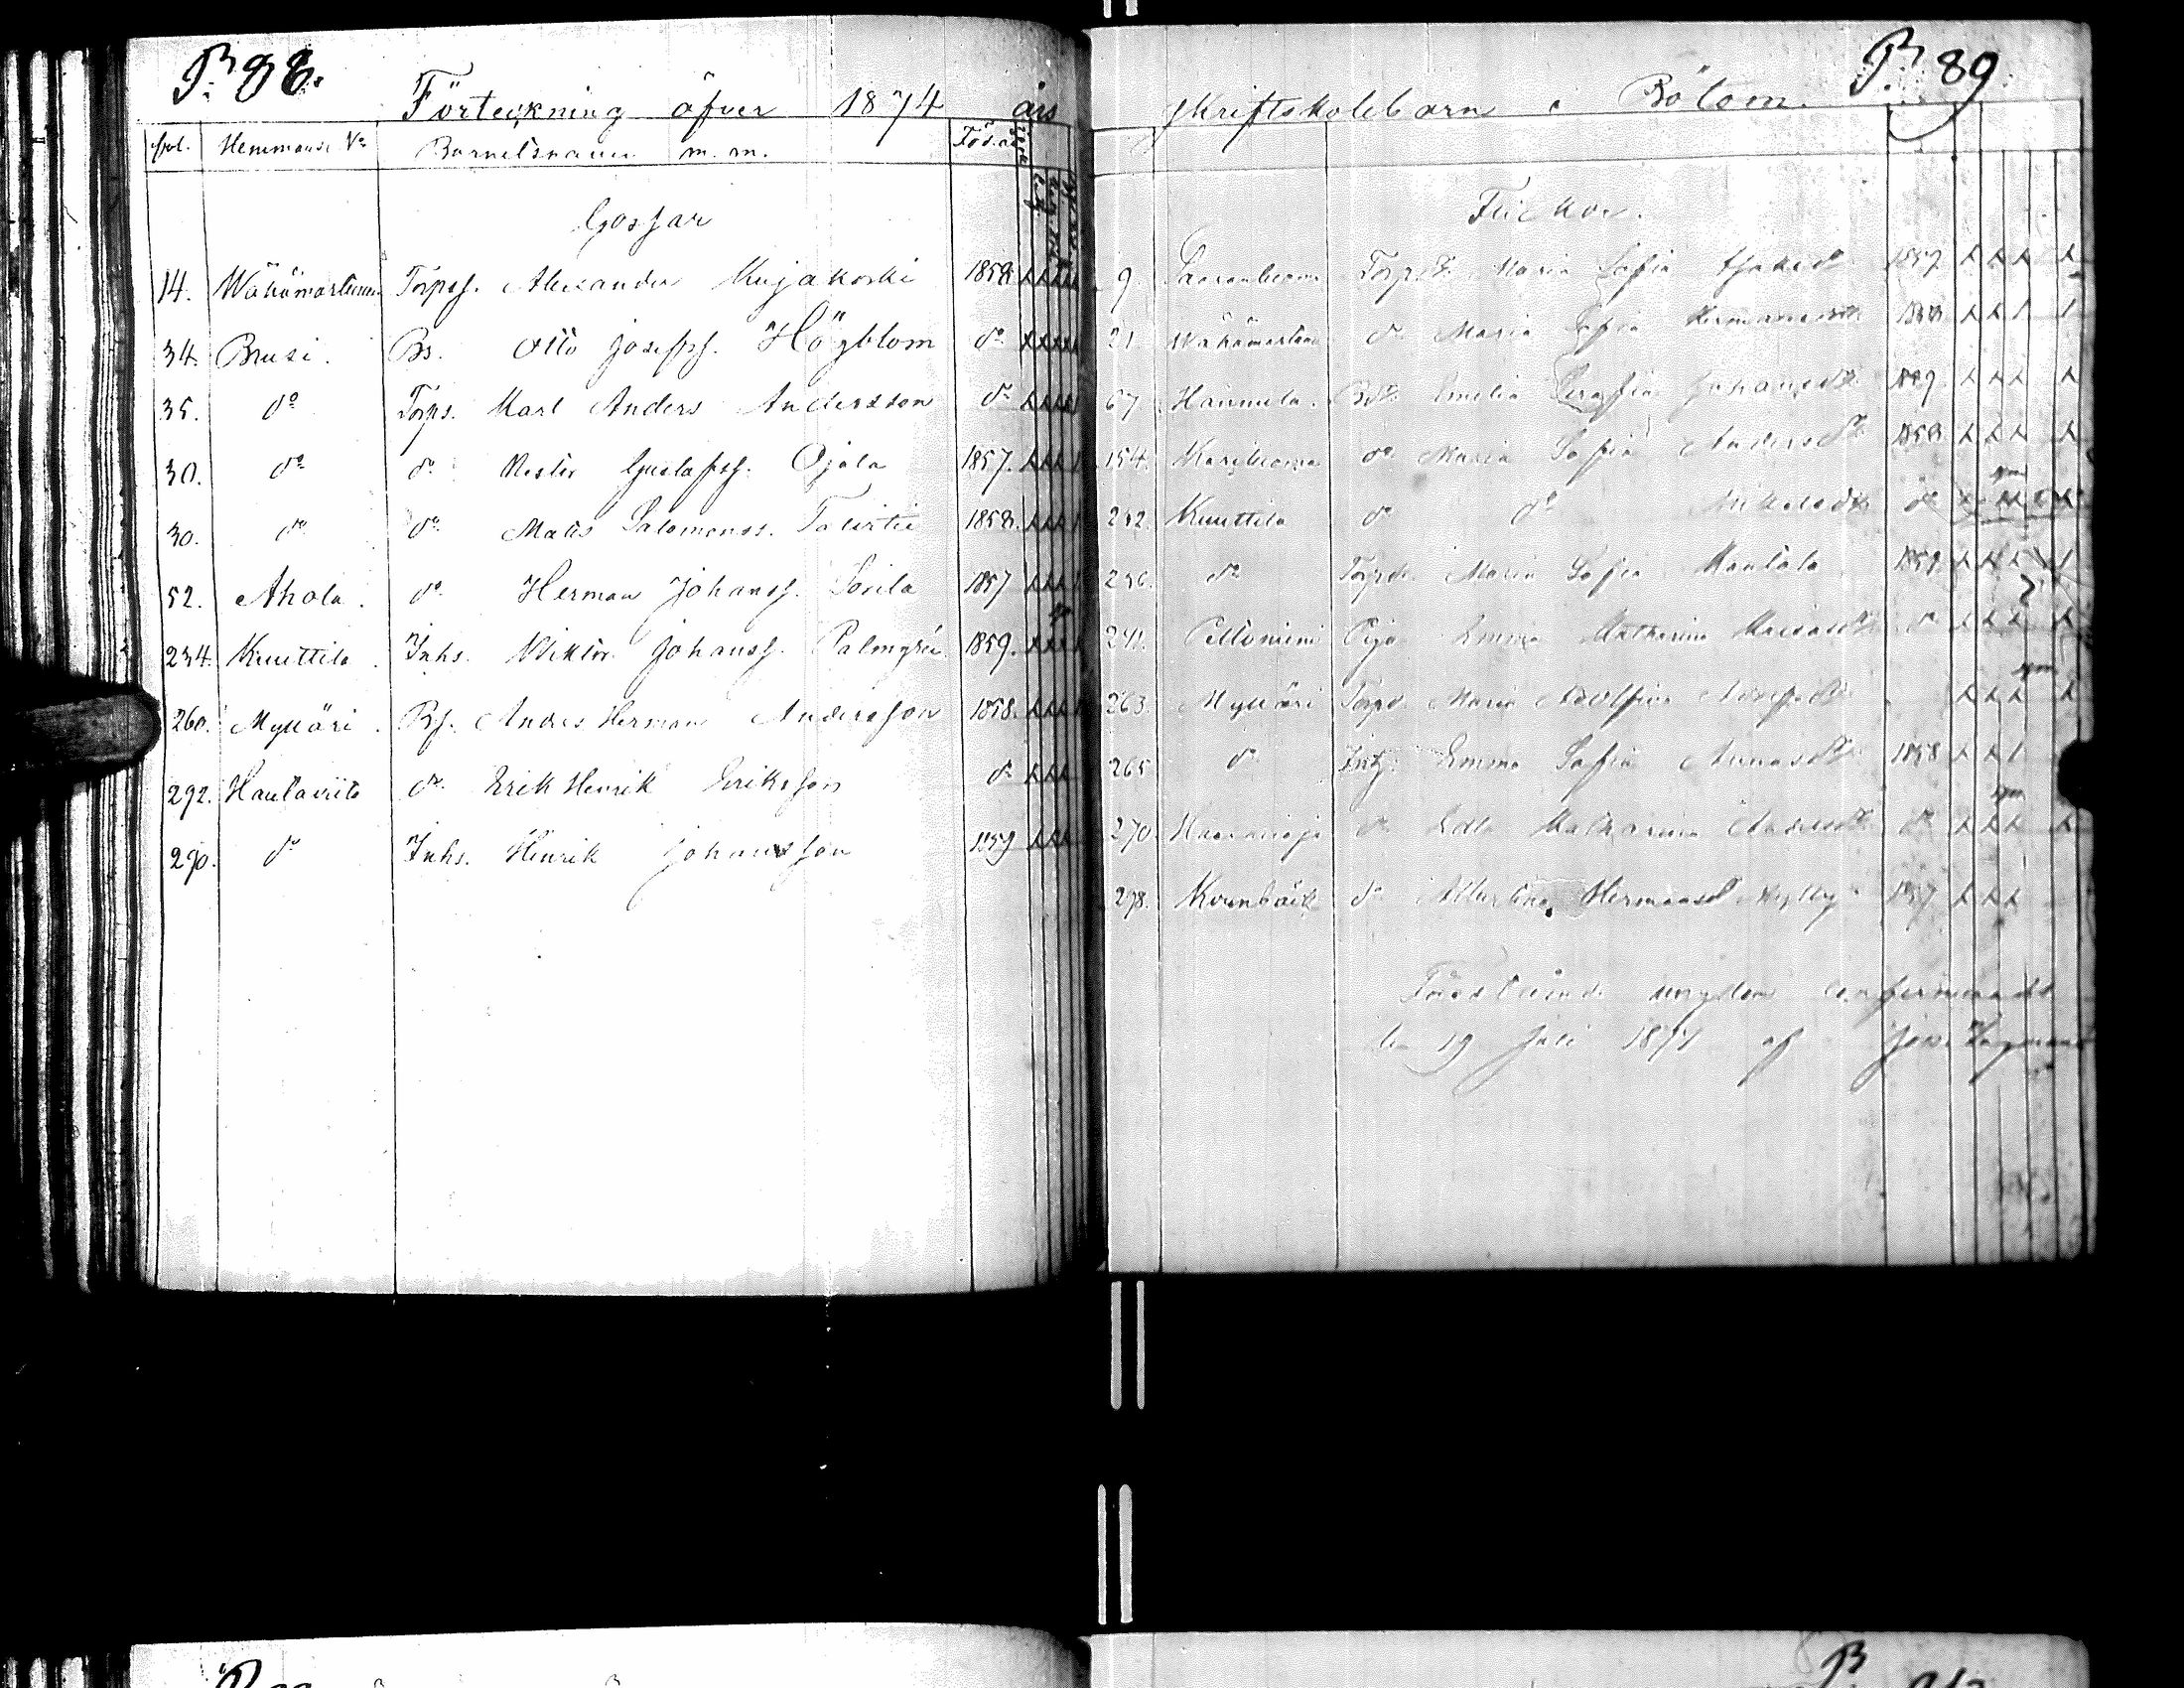 P. 88.
Förteckning öfver 1874 års
fol. Hemmans No Barnets namn m. m. Föd. år
Gossar
14. Wähämartimo Torps. Alexander Kujakoski 1858.
34. Brusi. Bs. Otto Josefss. Högblom do
35. do Torps. Karl Anders Andersson do
30. do do Nestor Gustafss. Ojala 1857.
30. do do Matts Salomonss. 1858.
52. Ahola. do Herman Johanss. Sorila 1857
234. Kuuttila. Inhs. Wiktor Johanss. Palmgrén 1859.
260. Mylläri. Bs. Anders Herman Andersson 1858.
292. Hautaviita do Erik Henrik Eriksson do
290. do Inhs. Henrik Johansson 1859
P. 89.
skriftskolebarn i Bötom.
Flickor.
9. Torpdr. Maria Sofia 1859
21. Wähämartimo do Maria Sofia Hermansdr 1858
67. Hannula. Bdr. Emilia Serafia Johansdr 1859
154. do Maria Sofia Andersdr 1858
232. Kuuttila do do Mikelsdr do
236. do Torpdr Maria Sofia 1859
241. Peltoniemi Piga Emma Katharina do
263. Mylläri Torpd Maria Adolfina Josefsdr
265 do Emma Sofia 1858
270. do Edla Katharina Andersdr do
278. Kvarnbäck do Albertina Hermansd 1857
Förestående ungdom confirmerades
den 19 Juli 1874 af